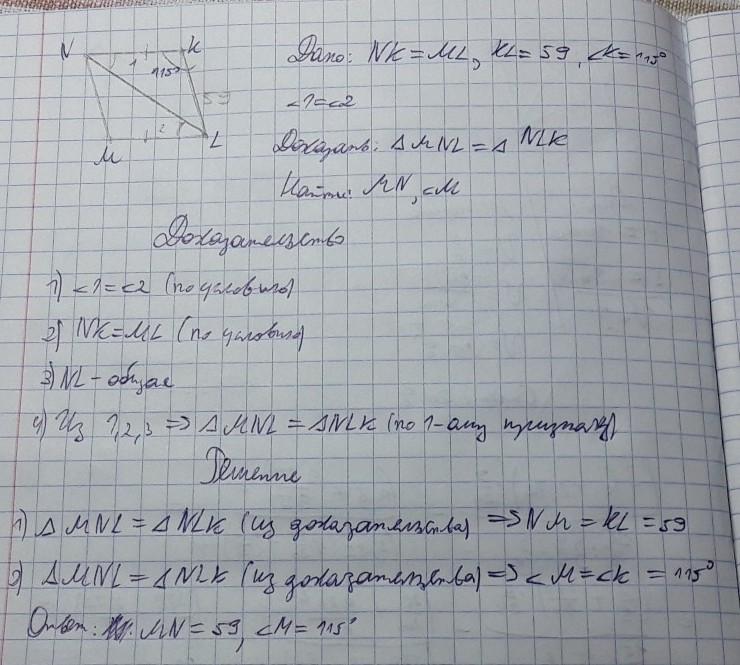 N K
1 115°
59
2
M L
Дано: NK = ML, KL = 59, <K = 115°
<1 = <2
Доказать: Δ MNL = Δ NLK
Найти: MN, <M
Доказательство
1) <1 = <2 (по условию)
2) NK = ML (по условию)
3) NL - общая
4) Из 1,2,3 => Δ MNL = Δ NLK (по 1-ому признаку)
Решение
1) Δ MNL = Δ NLK (из доказательства) => NM = KL = 59
2) Δ MNL = Δ NLK (из доказательства) => <M = <K = 115°
Ответ: MN = 59, <M = 115°